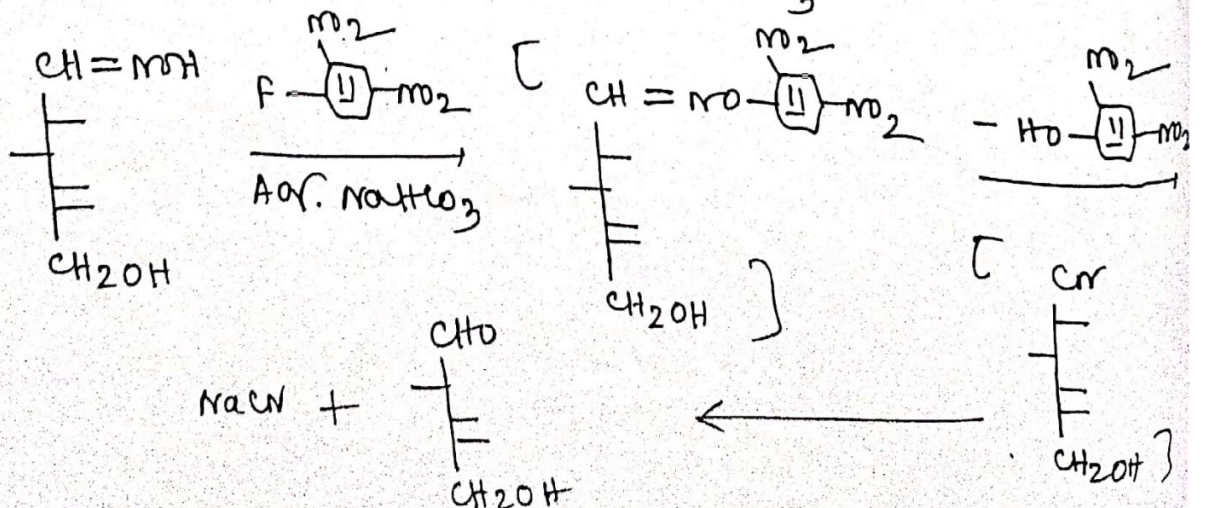 NO2
CH=NOH
F NO2
Aq. NaHCO3
CH2OH
[
NO2
CH=NO NO2
CH2OH ]
NO2
- HO NO2
[ CN
CH2OH ]
NaCN + CHO
CH2OH